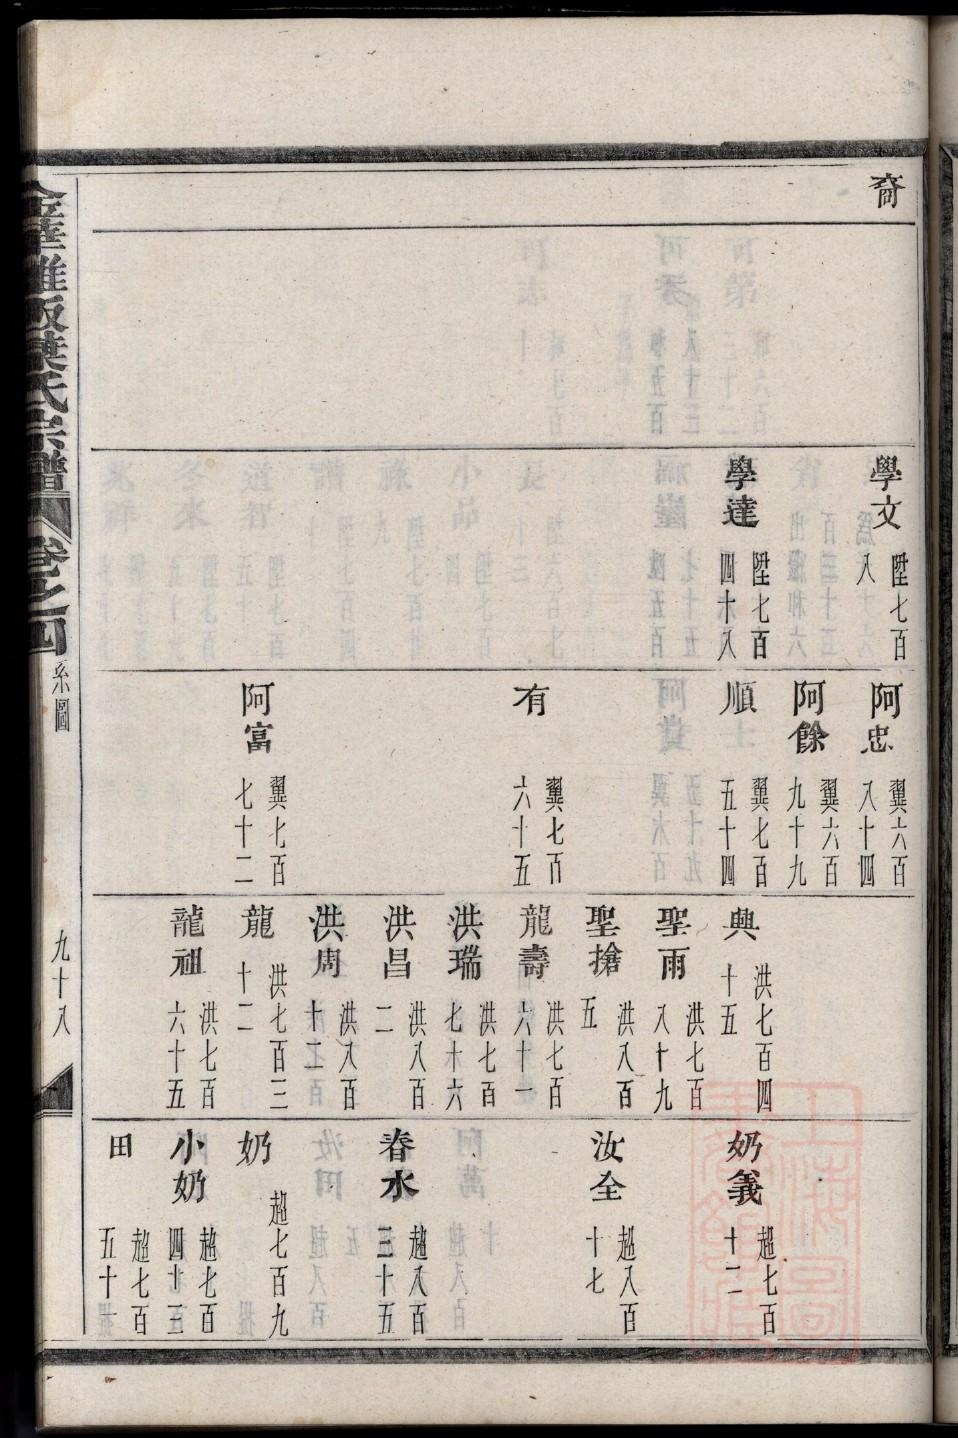 裔
學文 陞七百八
學達 陞七百四十八
阿忠 翼六百八十四
阿餘 翼六百九十九
順 翼七百五十四
有 翼七百六十五
阿富 翼七百七十二
典 洪七百四十五
聖雨 洪七百八十九
聖搶 洪八百五
龍壽 洪七百六十一
洪瑞 洪七百七十六
洪昌 洪八百二
洪周 洪八百十二
龍 洪七百三十二
龍祖 洪七百六十五
奶義 超七百十二
汝全 超八百十七
春水 超八百三十五
奶 超七百九
小奶 超七百四十三
田 超七百五十一
金華雅畈葉氏宗譜
卷之四
系圖
九十八